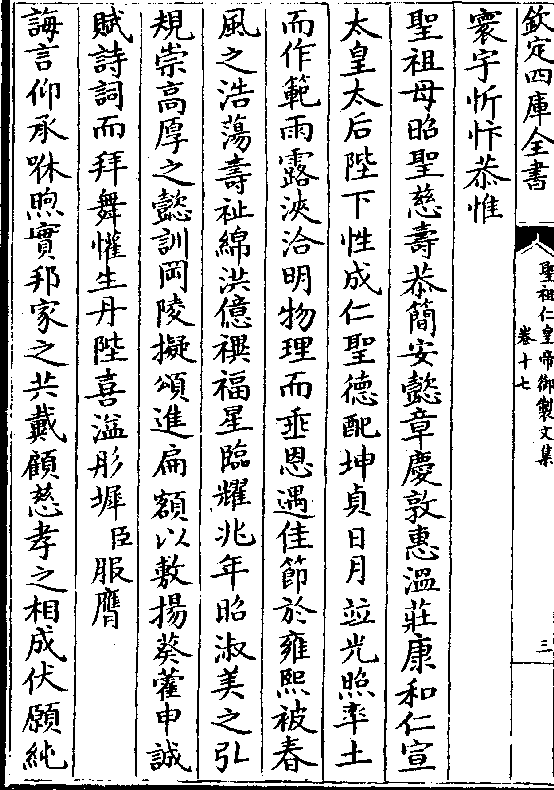 欽定四庫全書
聖祖仁皇帝御製文集
卷十七
三
寰宇忻忭恭惟
聖祖母昭聖慈壽恭簡安懿章慶敦惠溫莊康和仁宣
太皇太后陛下性成仁聖德配坤貞日月並光照率土
而作範雨露浹洽明物理而垂恩遇佳節於雍熙被春
風之浩蕩壽祉綿洪億禩福星臨耀兆年昭淑美之弘
規崇高厚之懿訓岡陵擬頌進扁額以敷揚葵藿申誠
賦詩詞而拜舞懽生丹陛喜溢彤墀臣服膺
誨言仰承咻煦實邦家之共戴顧慈孝之相成伏願純